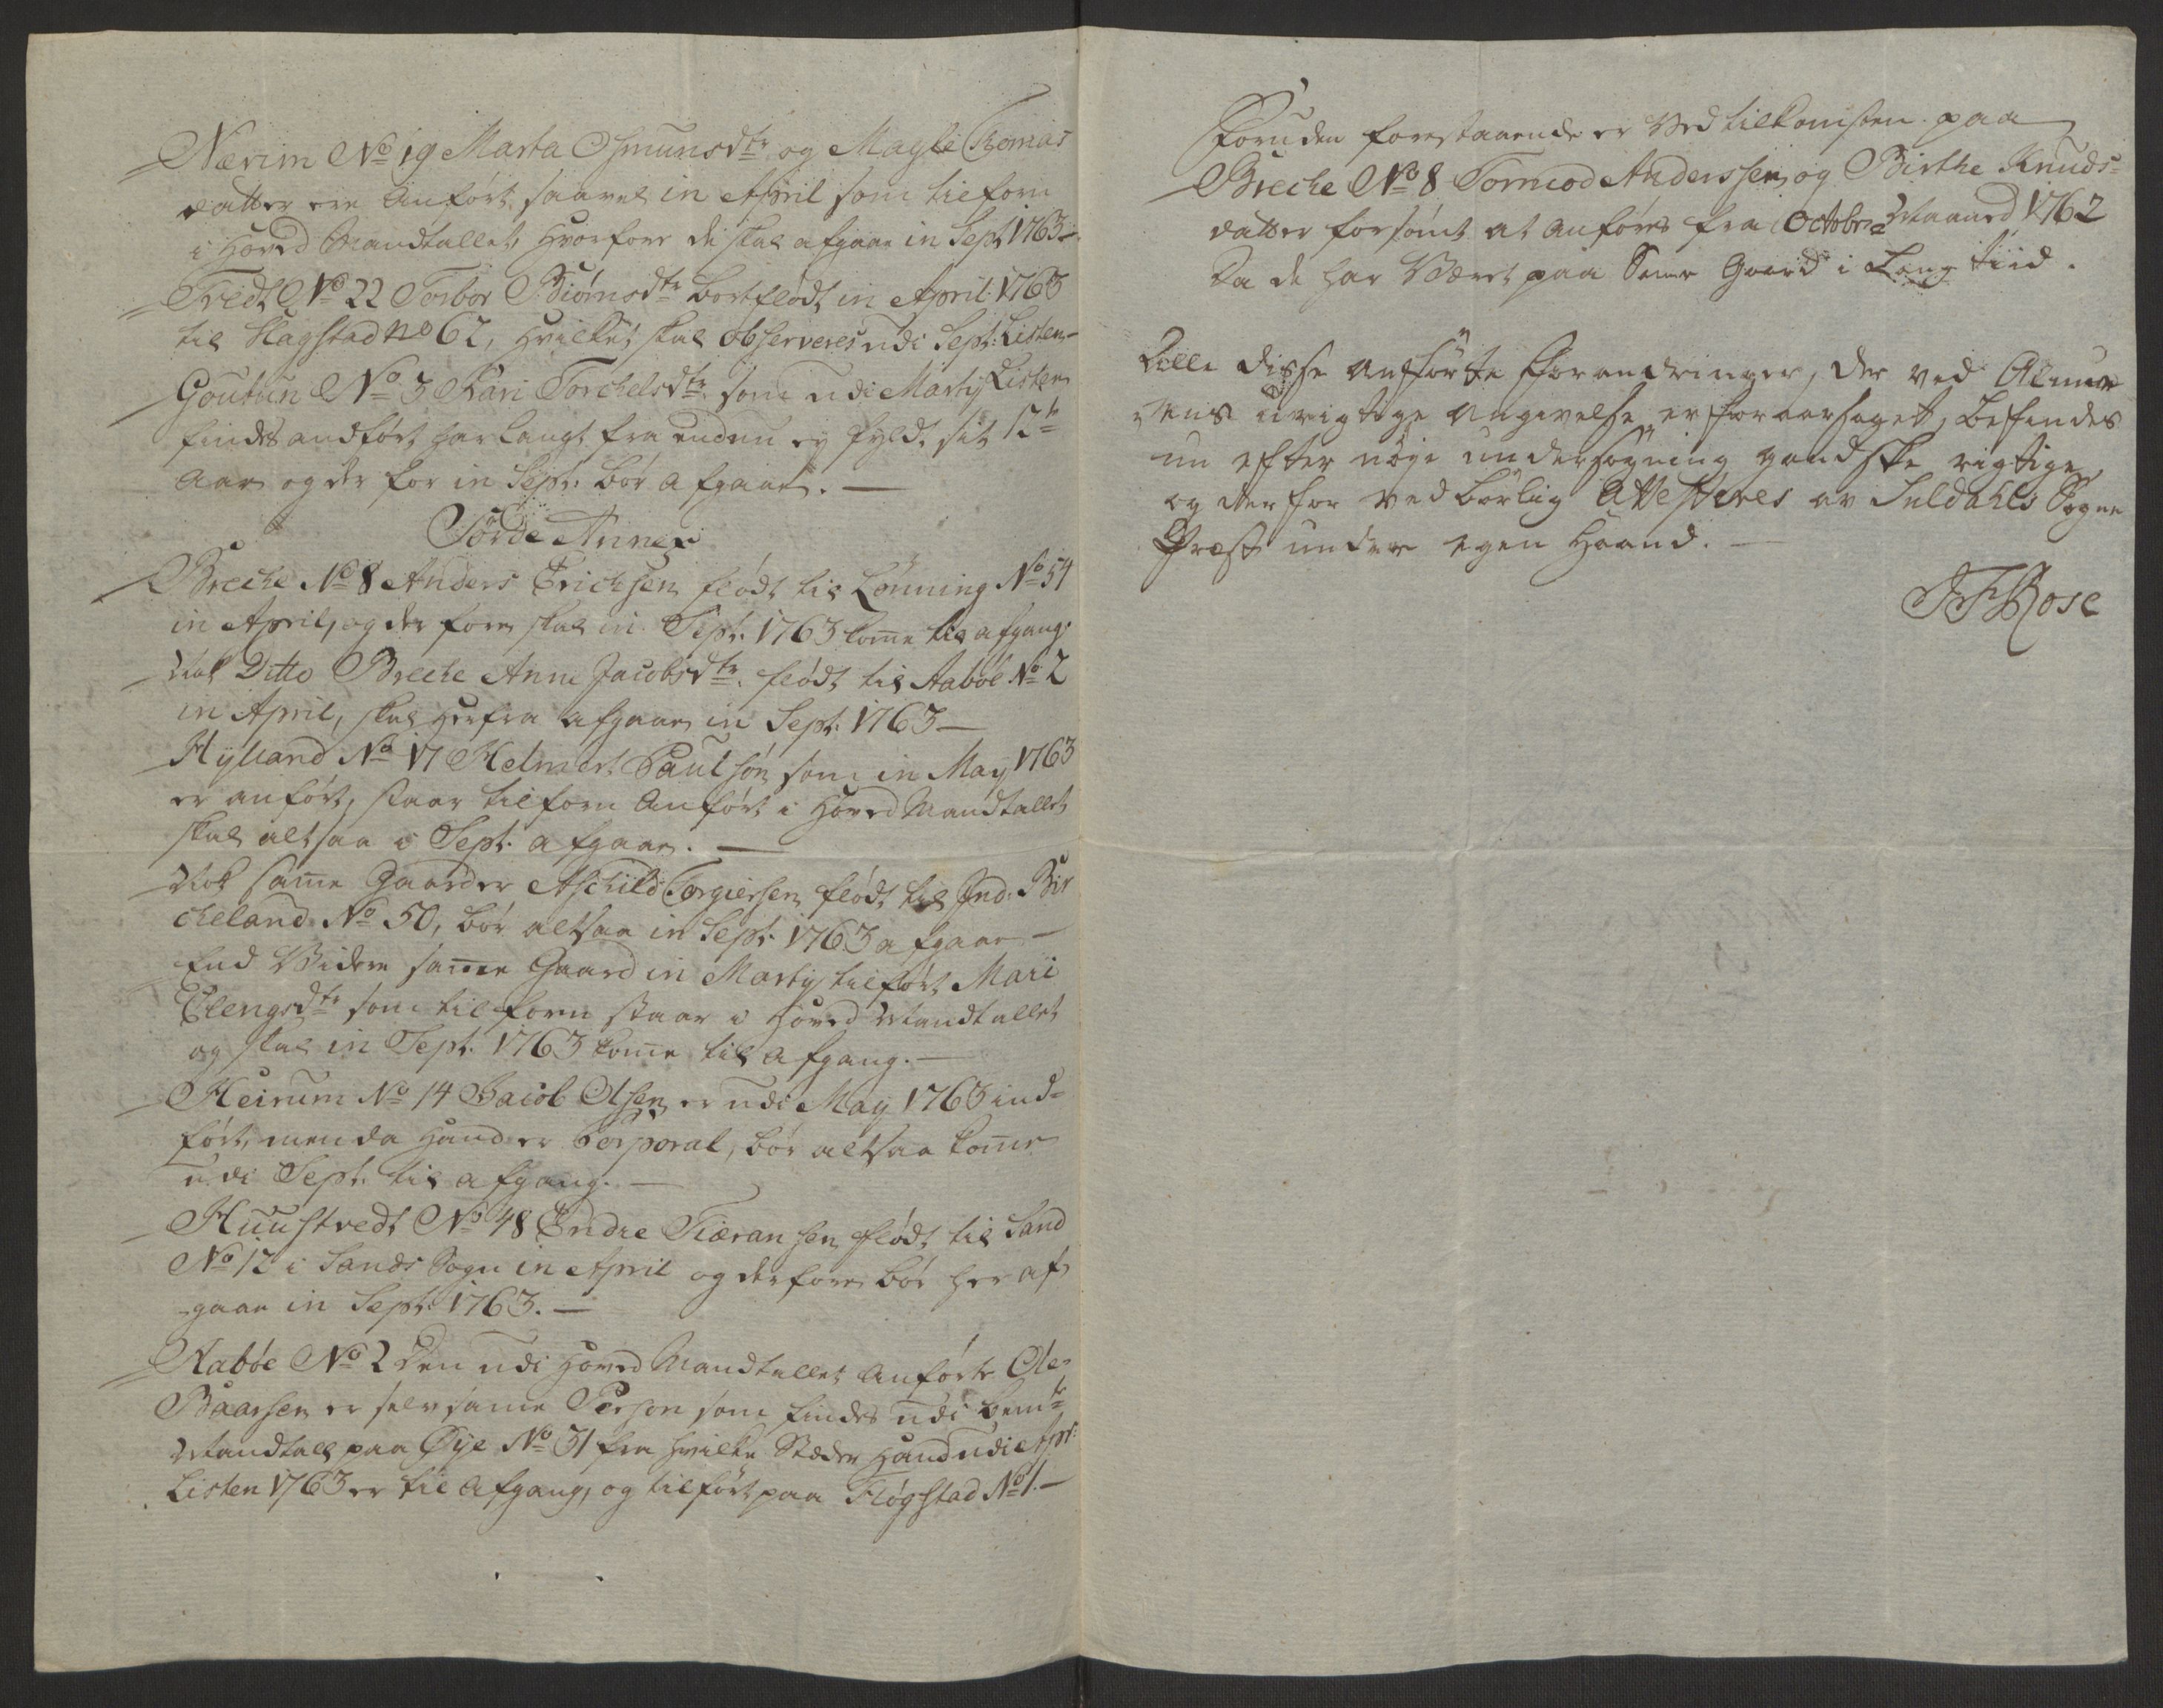 Nærim No 19 Marta Osmunsdtr og Magle Thomas
datter ere anført saavel in April som tilforn
i Hoved Mandtallet, hvorfore de skal afgaae in Sept 1763 -
Tvedt No 22 Torbor Biørnsdtr bortflødt in April 1763
til Hagstad no 62, hvilket skal observeres udi Sept: Listen -
Goutun No 3 Kari Torchelsdtr som udi Marty Listen
findes andført har langt fra endnu ey fyldt sit 12te
Aar og der for in Sept: bør afgaae. -
Jørde Annex
Breche No 8 Anders Erichsen flødt til Lønning No 54
in April, og der fore skal in Sept: 1763 kome til afgang.
Nok Ditto Breche Anne Jacobsdtr. flødt til Aabøe No 2
in April, skal herfra afgaae in Sept: 1763 -
Hylland No 17 Helmer Paulsøn som in May 1763
er anført, staar tilforn anført i Hoved Mandtallet
skal altsaa i Sept: afgaae. -
Nok same Gaard er Aschild Torgiersen flødt til Ind. Bir
cheland No 50, bør altsaa in Sept: 1763 afgaae -
End Videre same Gaard in Marty tilført Mari
Elengsdtr som tilforn staar i Hoved Mandtallet
og skal in Sept: 1763 kome til afgang. -
Heirum No 14 Jacob Olsen er udi May 1763 ind-
ført, men da hand er Corporal, bør altsaa kome
udi Sept. til afgang. -
Huustvedt No 48 Endre Tiæransen flødt til Sand
No 12 i Sands Sogn in April og derfore bør her af
-gaae in Sept: 1763. -
Aabøe No 2 Den udi Hoved Mandtallet anførte Ole
Baarsen er selv same Person som findes udi bemte
Mandtall paa Øye No 31 fra hvilke Stæder hand udi Apr:
Listen 1763 er til afgang, og tilført paa Fløgstad No 1. -
Foruden forestaaende er Ved tilkomsten paa
Breche No 8 Tormod Anderssen og Birthe Knuds-
datter forsømt at anføres fra October Maaned 1762
Da de har Været paa Same Gaard i Lang tiid.
Alle disse anførte Forandringer, der ved Almu-
ens urigtige Angivelse er foraarsaget, befindes
nu efter nøye undersøgning gandske rigtige,
og derfor vedbørlig Attesteres av Suldahls Sogne
Præst under egen Haand. -
J F Bose